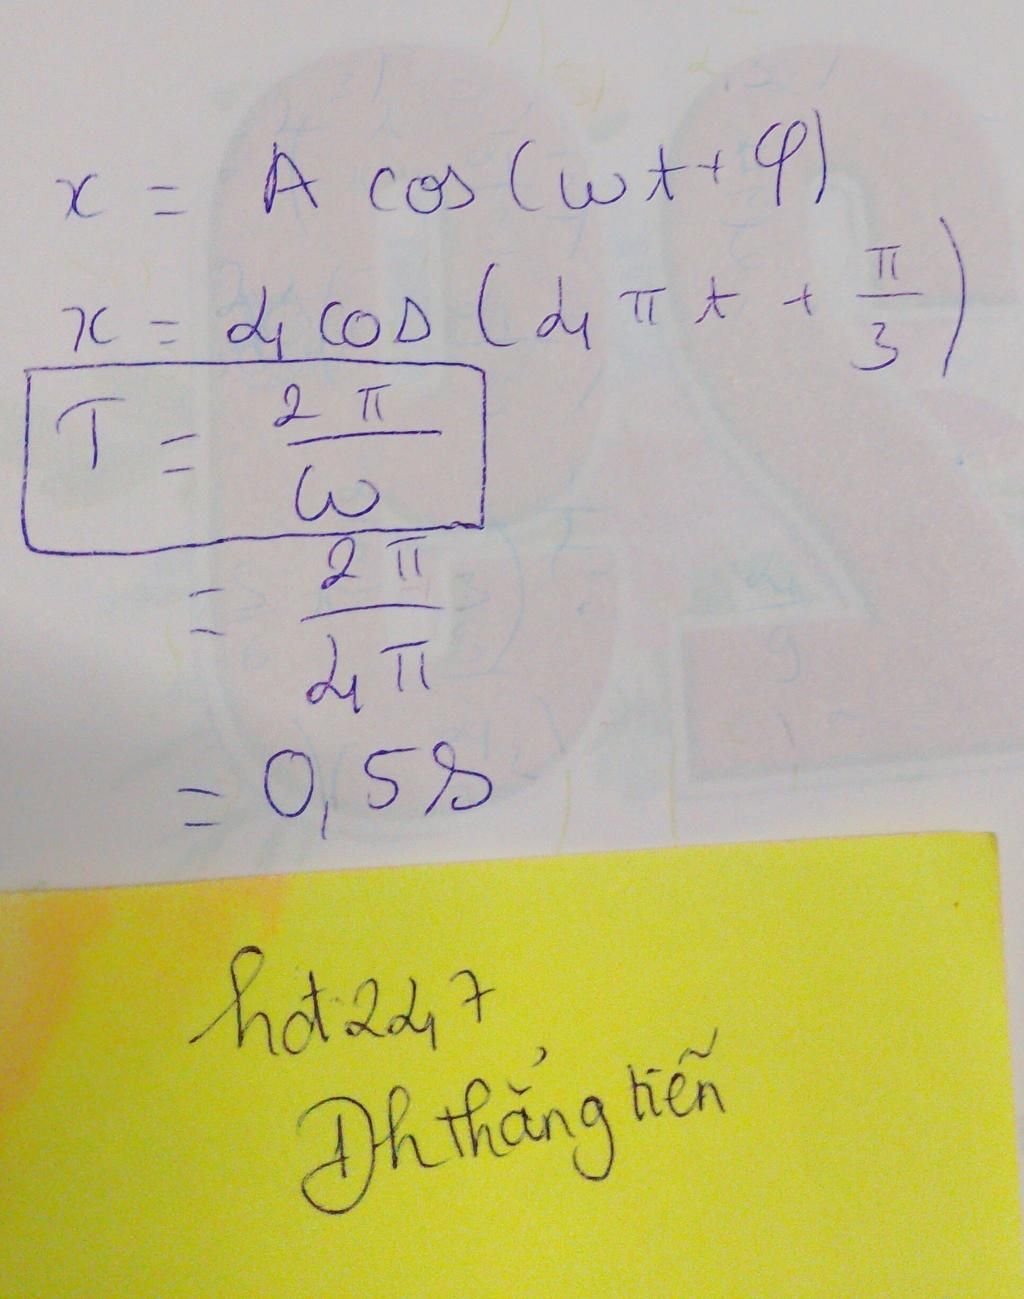 x = A cos(ωt + φ)
x = 4 cos(4πt + π/3)
T = 2π/ω
= 2π/4π
= 0,5s
hdt 247
Đh thẳng tiến